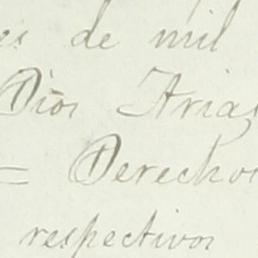 es de mil
Dios Arias
= Derechos
respectivos